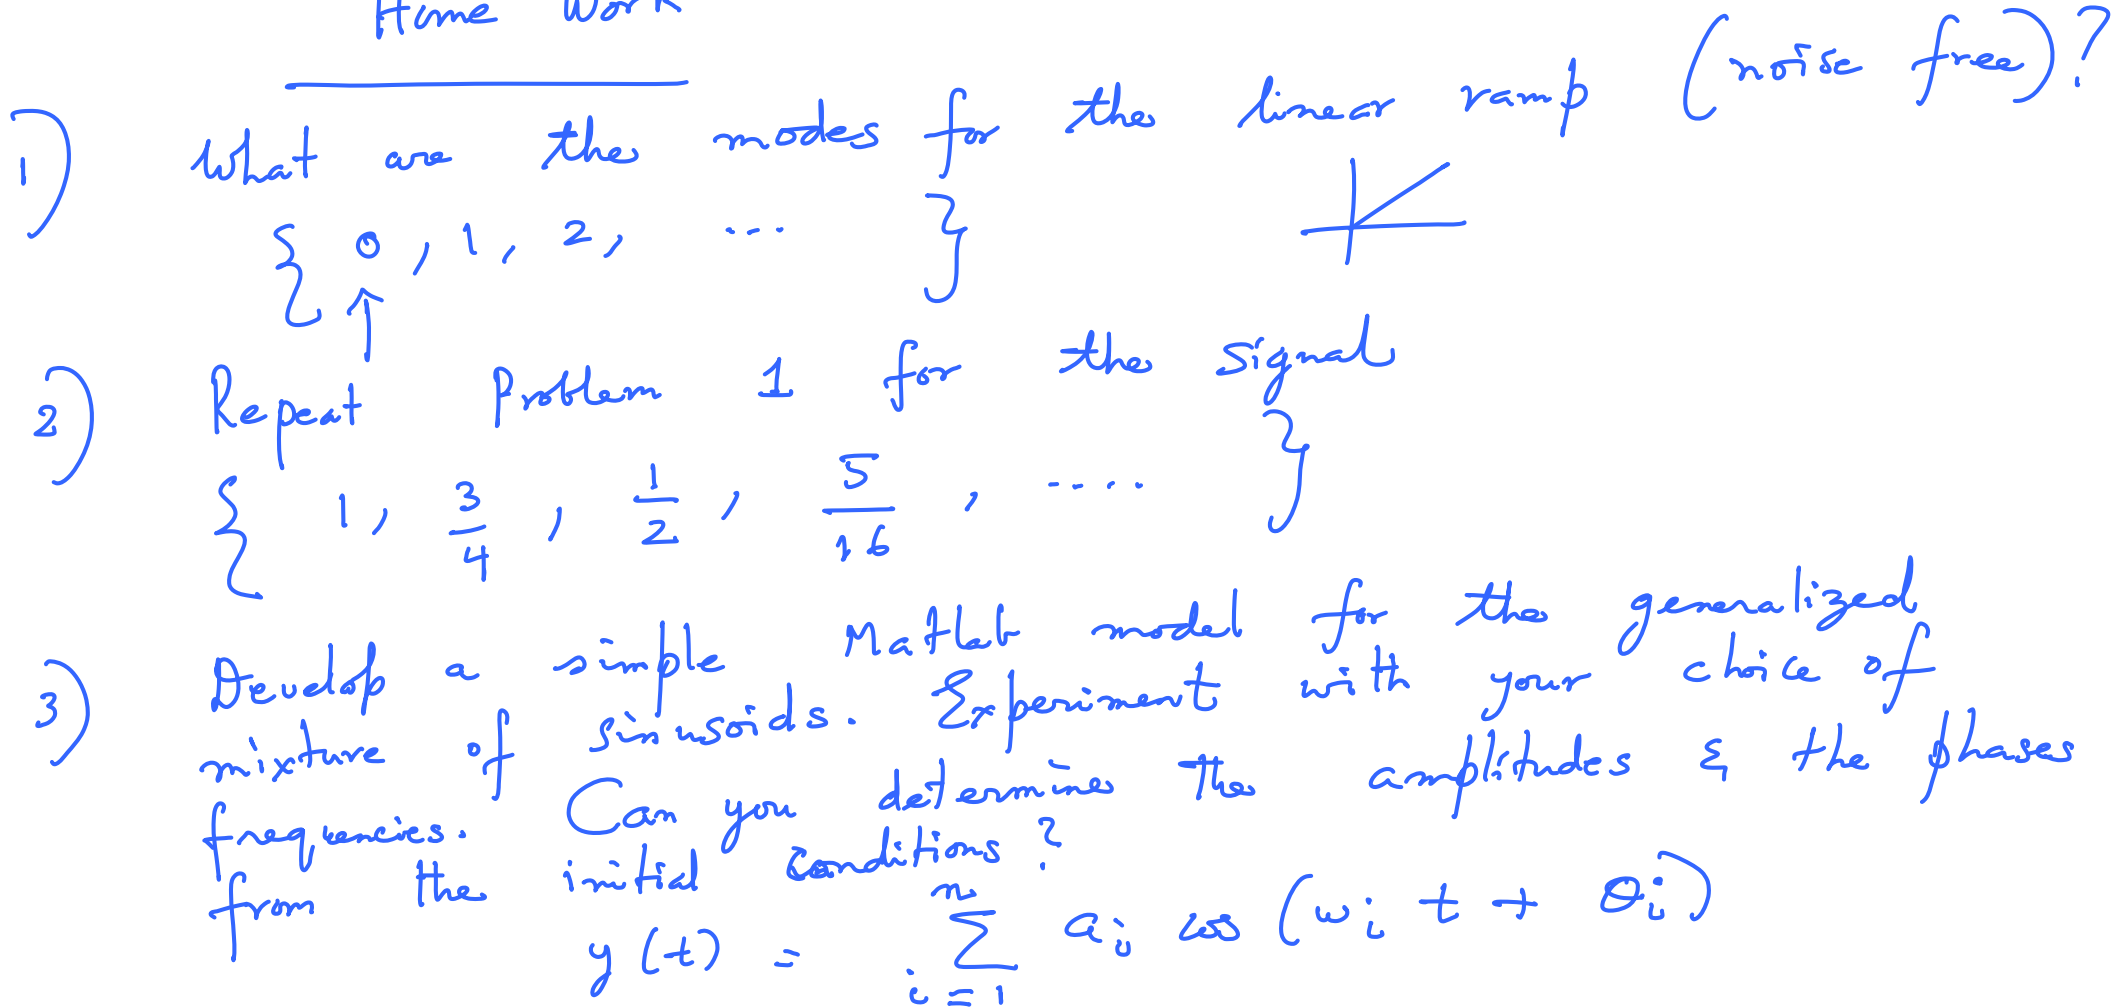 Home Work
1) What are the modes for the linear ramp (noise free)?
{ 0, 1, 2, ... }
↑
2) Repeat Problem 1 for the signal
{ 1, 3/4, 1/2, 5/16, .... }
3) Develop a simple Matlab model for the generalized
mixture of sinusoids. Experiment with your choice of
frequencies. Can you determine the amplitudes & the phases
from the initial conditions?
y(t) = ∑_{i=1}^{n} a_i cos(w_i t + θ_i)